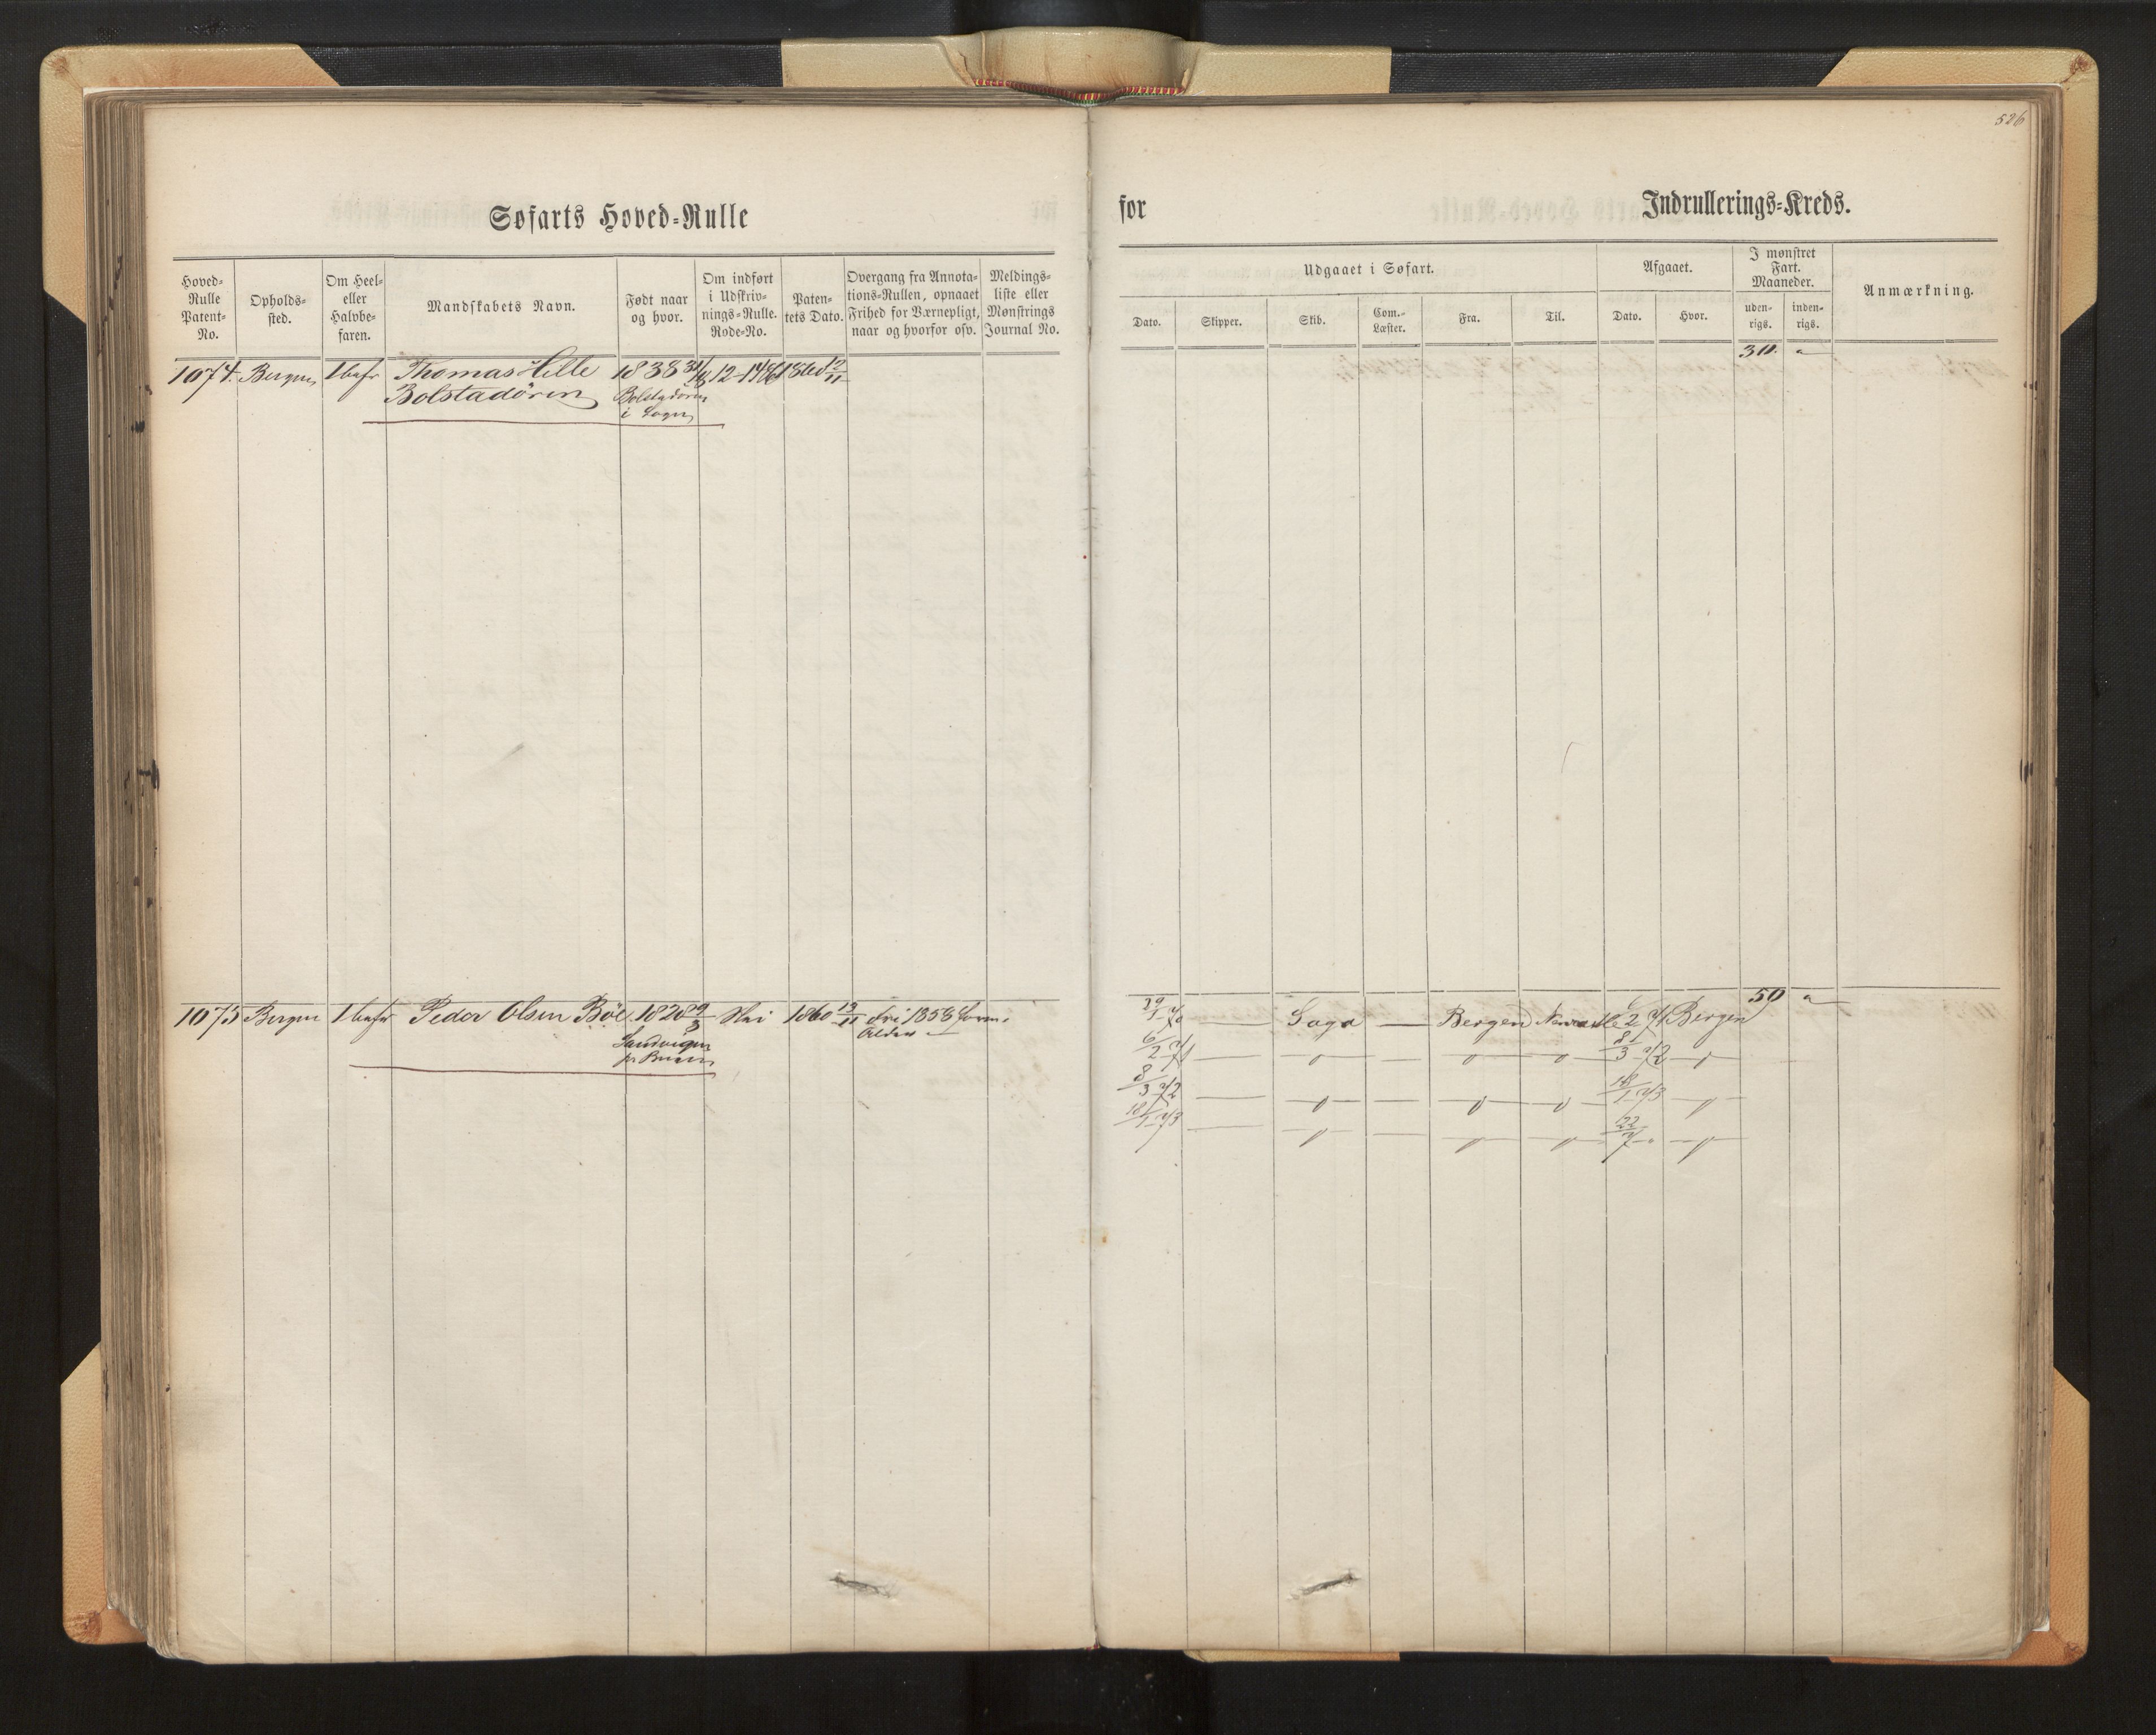 526
Søfarts Hoved-Rulle
for
Indrullerings-Kreds.
Hoved-Rulle Patent-No.
Opholds-sted.
Om Heel- eller Halvbe-faren.
Mandskabets Navn.
Født naar og hvor.
Om indført i Udskriv-nings-Rulle. Rode-No.
Paten-tets Dato.
Overgang fra Annota-tions-Rullen, opnaaet Frihed for Værnepligt, naar og hvorfor osv.
Meldings-liste eller Mønstrings Journal No.
Udgaaet i Søfart.
Dato.
Skipper.
Skib.
Com.-Læster.
Fra.
Til.
Afgaaet.
Dato.
Hvor.
I mønstret Fart. Maaneder.
uden-rigs.
inden-rigs.
Anmærkning.
1074. Bergen Thomas Hille 1838 12 1860 12/11 30 "
Bolstadören Bolstadören
i Sogn
1075 Bergen Peder Olsen Böe 1828 Nei 1860 13/11 fri 1858 50 "
Sandvigen Alder
29/1 70 — Saga — Bergen Newcastle 6/2 71 Bergen
6/2 71 — " — " " 8/3 72 "
8/3 72 — " — " " 18/1 73 "
18/1 73 — " — " " 22/7 " "